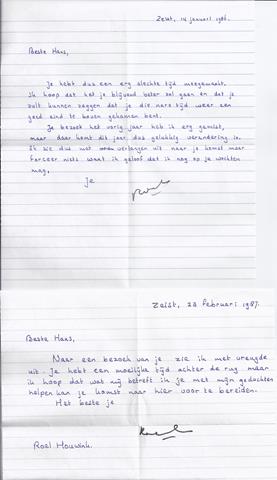 Zeist, 14 januari 1986.
Beste Hans,
Je hebt dus een erg slechte tijd meegemaakt.
Ik hoop dat het je blijvend beter zal gaan en dat je
zult kunnen zeggen dat je die nare tijd weer een
goed eind te boven gekomen bent.
Je bezoek het vorig jaar heb ik erg gemist,
maar daar komt dit jaar dus gelukkig verandering in.
Ik zie dus met verlangen uit naar je komst maar
forceer niets want ik geloof dat ik nog op je wachten
mag.
Je
Roel
Zeist, 23 februari 1987.
Beste Hans,
Naar een bezoek van je zie ik met vreugde
uit. Je hebt een moeilijke tijd achter de rug maar
ik hoop dat wat mij betreft ik je met mijn gedachten
helpen kan je komst naar hier voor te bereiden.
Het beste je
Roel
Roel Houwink.